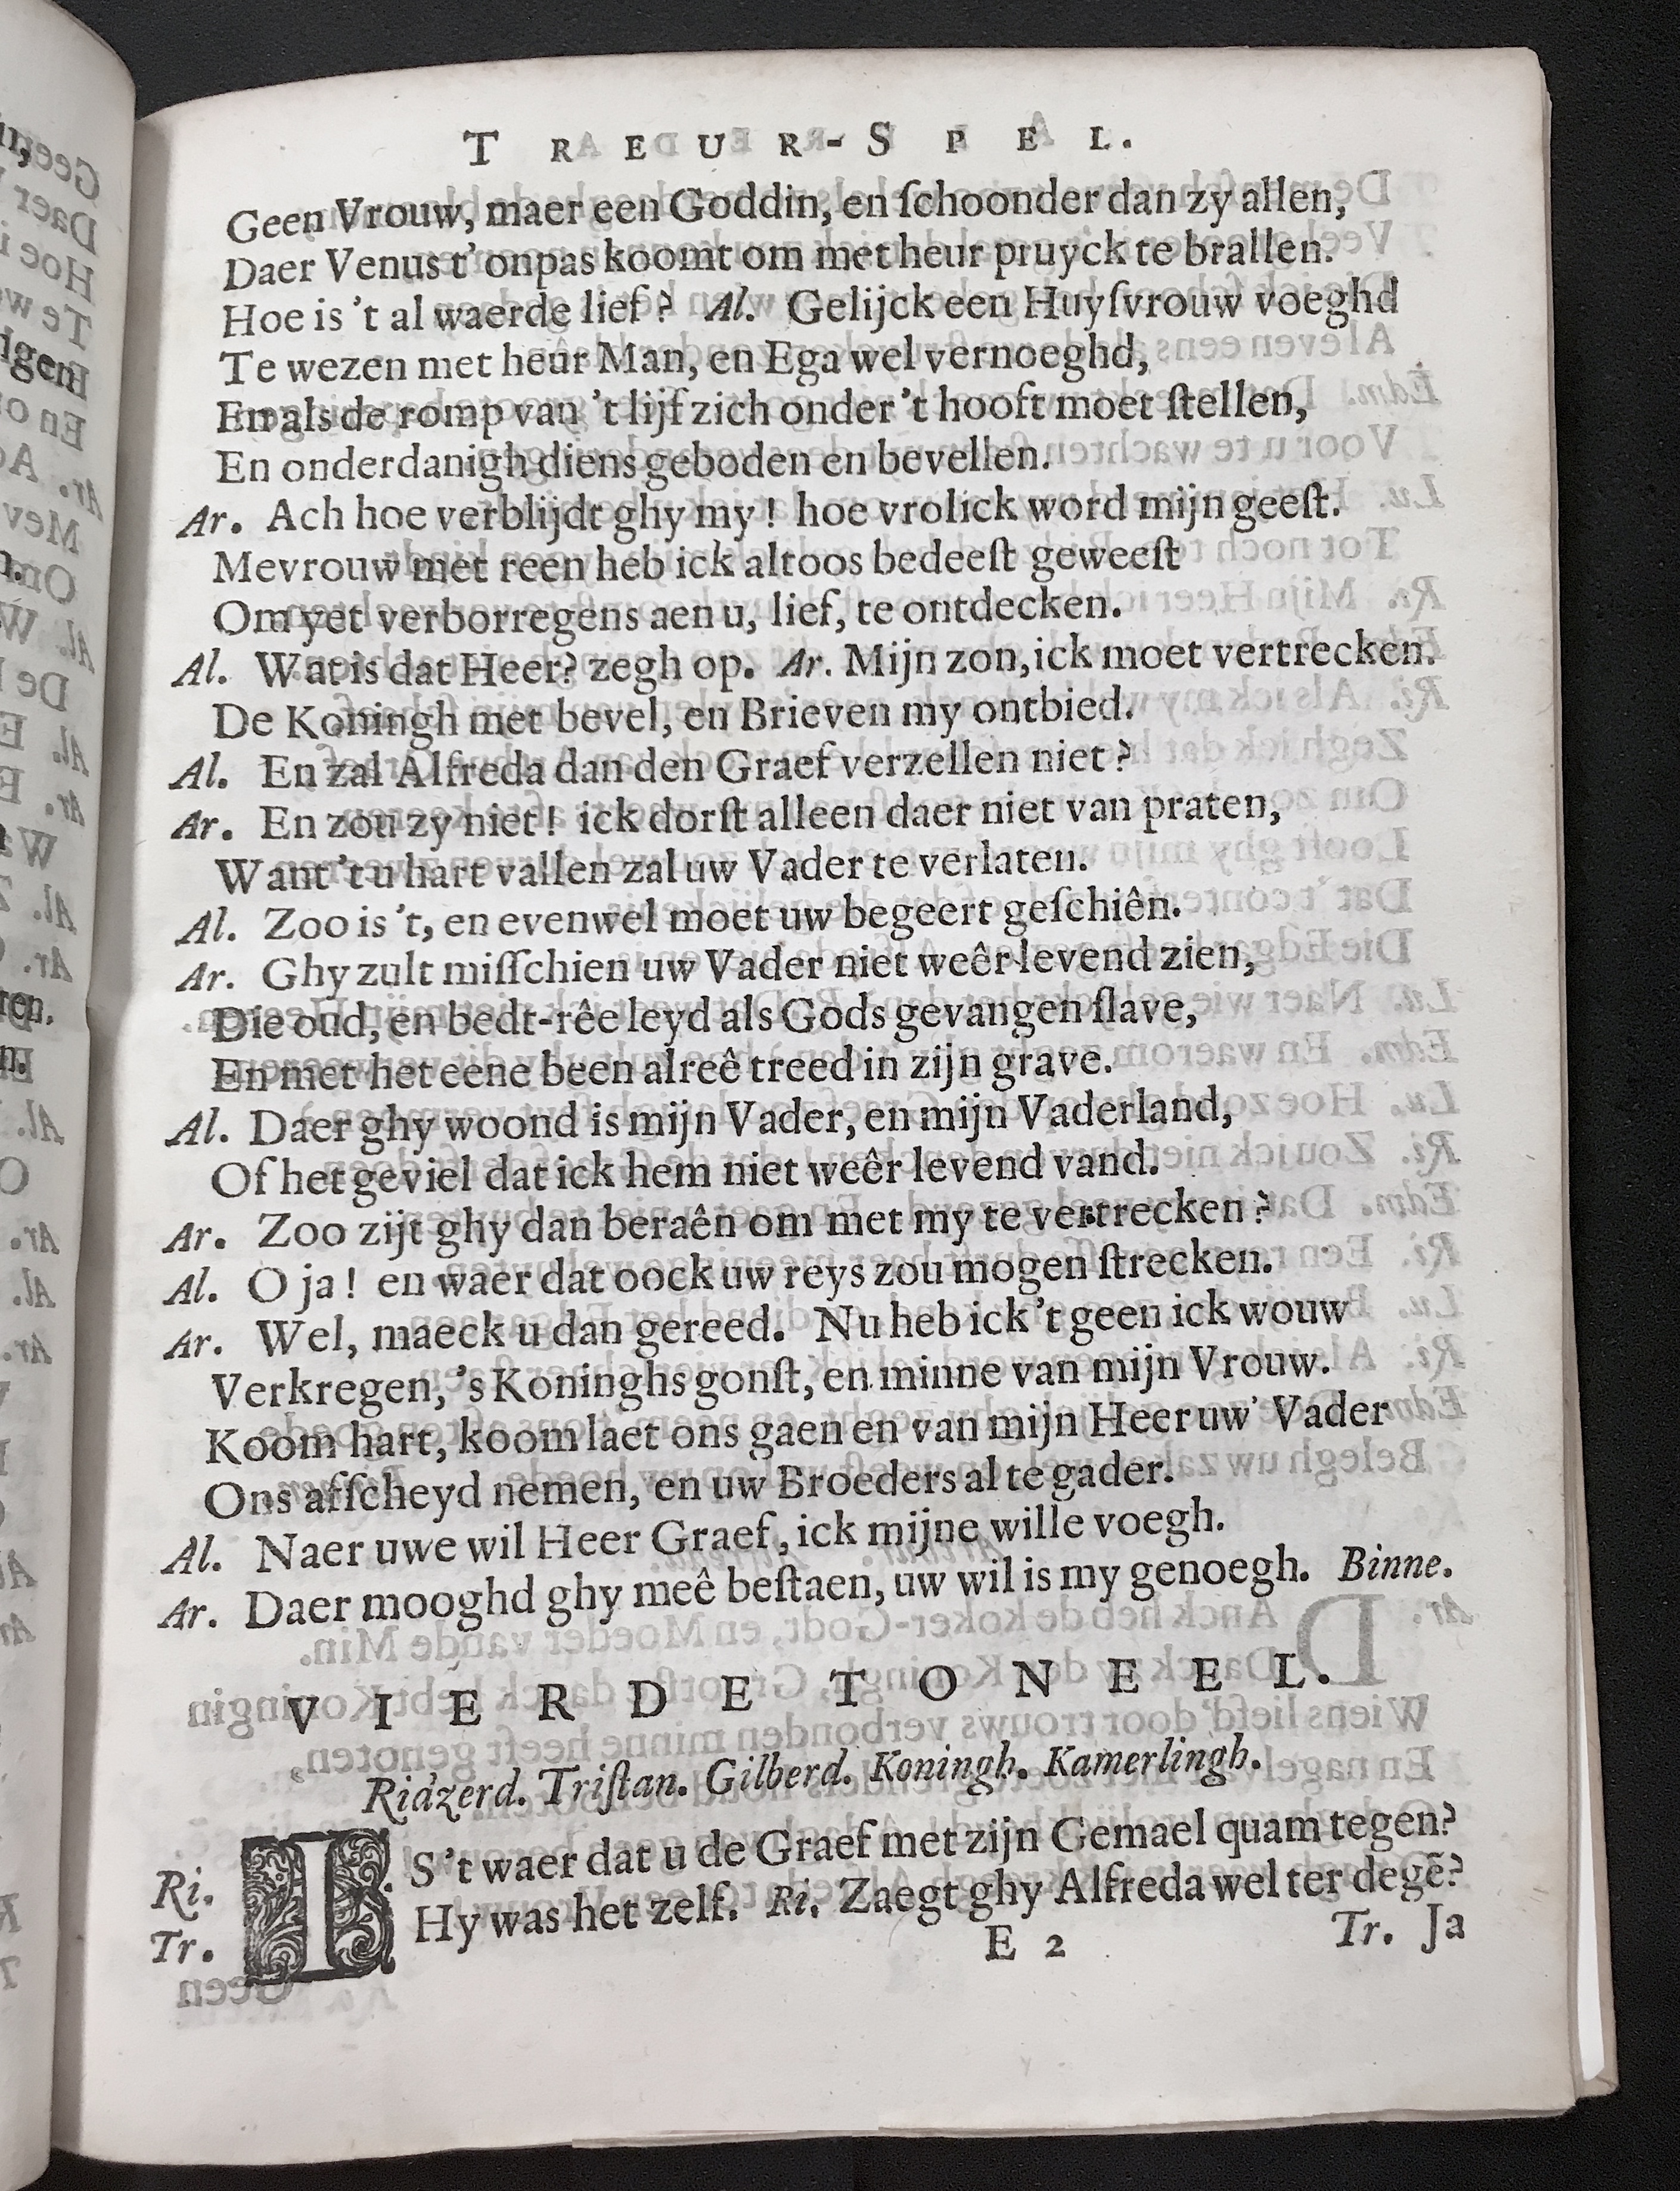 TREUR-SPEL.
Geen Vrouw, maer een Goddin, en ſchoonder dan zy allen,
Daer Venus t'onpas koomt om met heur pruyck te brallen.
Hoe is 't al waerde lief? Al. Gelijck een Huyſvrouw voeghd
Te wezen met heur Man, en Ega wel vernoeghd,
En als de romp van 't lijf zich onder 't hooft moet ſtellen,
En onderdanigh diens geboden en bevellen.
Ar. Ach hoe verblijdt ghy my! hoe vrolick word mijn geeſt.
Mevrouw met reen heb ick altoos bedeeſt geweeſt
Om yet verborregens aen u, lief, te ontdecken.
Al. Wat is dat Heer? zegh op. Ar. Mijn zon, ick moet vertrecken.
De Koningh met bevel, en Brieven my ontbied.
Al. En zal Alfreda dan den Graef verzellen niet?
Ar. En zou zy niet! ick dorſt alleen daer niet van praten,
Want 't u hart vallen zal uw Vader te verlaten.
Al. Zoo is 't, en evenwel moet uw begeert geſchiên.
Ar. Ghy zult miſſchien uw Vader niet weêr levend zien,
Die oud, en bedt-rêe leyd als Gods gevangen ſlave,
En met het eene been alreê treed in zijn grave.
Al. Daer ghy woond is mijn Vader, en mijn Vaderland,
Of het geviel dat ick hem niet weêr levend vand.
Ar. Zoo zijt ghy dan beraên om met my te vertrecken?
Al. O ja! en waer dat oock uw reys zou mogen ſtrecken.
Ar. Wel, maeck u dan gereed. Nu heb ick 't geen ick wouw
Verkregen, 's Koninghs gonſt, en minne van mijn Vrouw.
Koom hart, koom laet ons gaen en van mijn Heer uw' Vader
Ons afſcheyd nemen, en uw Broeders al te gader.
Al. Naer uwe wil Heer Graef, ick mijne wille voegh.
Ar. Daer mooghd ghy meê beſtaen, uw wil is my genoegh. Binne.
VIERDE TONEEL.
Ridzerd. Triſtan. Gilberd. Koningh. Kamerlingh.
Ri. IS 't waer dat u de Graef met zijn Gemael quam tegen?
Tr. Hy was het zelf. Ri. Zaegt ghy Alfreda wel ter degẽ?
E 2 Tr. Ja